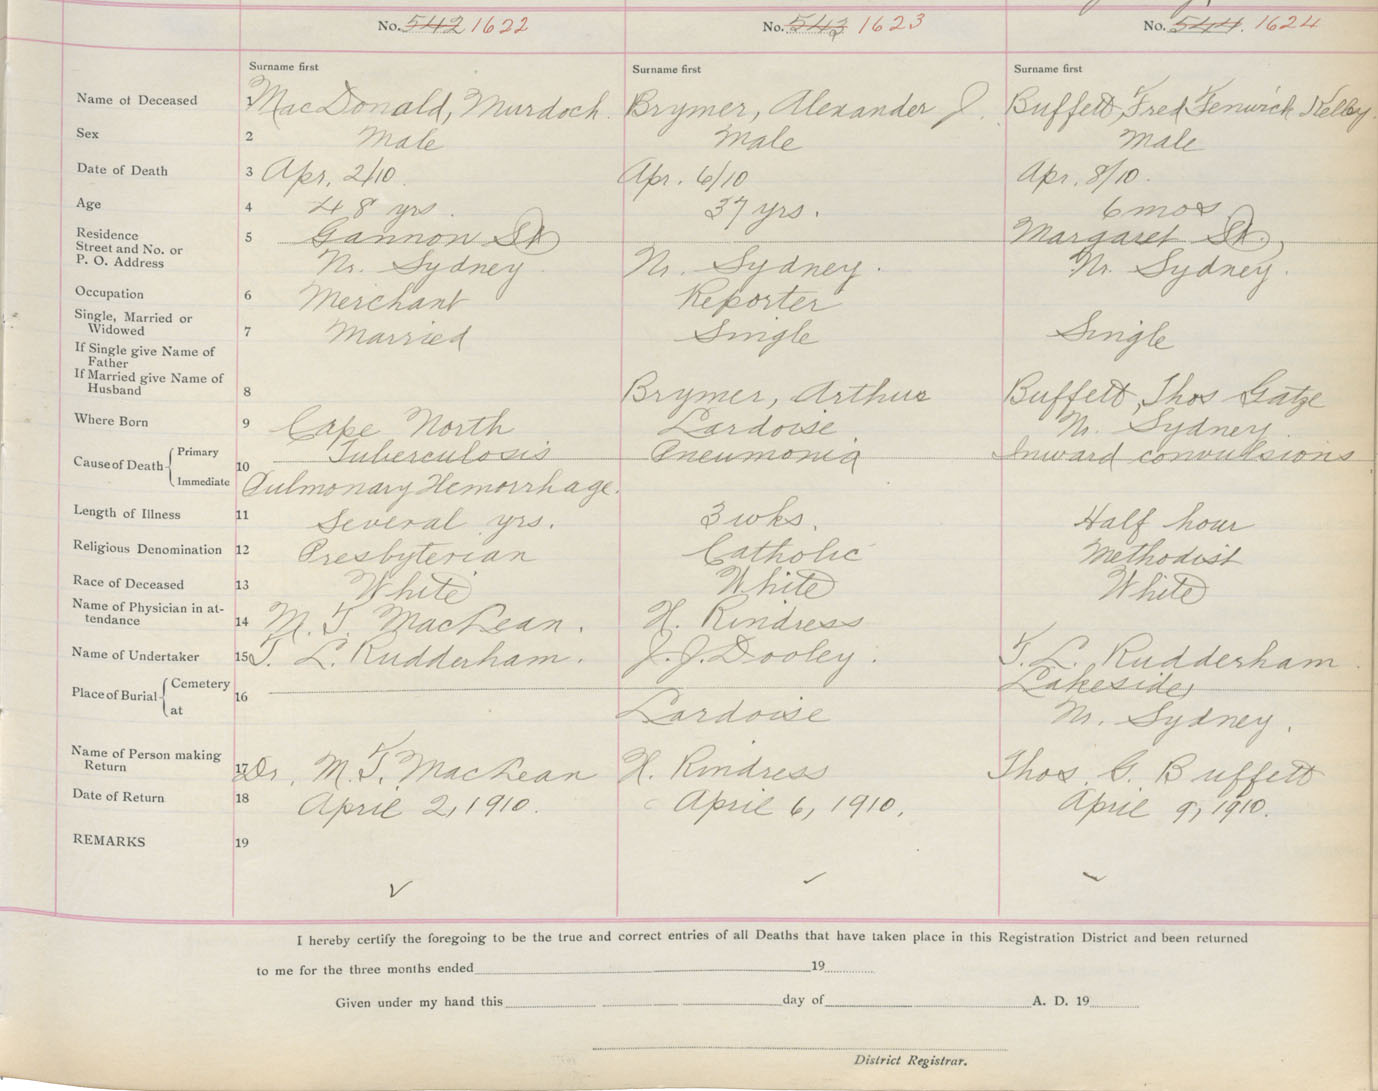 No. 542 1622 No. 543 1623 No. 544. 1624
Surname first Surname first Surname first
Name of Deceased 1 MacDonald, Murdoch. Brymer, Alexander J. Buffett, Fred Fenwick Kelsy.
Sex 2 Male Male Male
Date of Death 3 Apr. 2/10. Apr. 6/10 Apr. 8/10.
Age 4 48 yrs. 37 yrs. 6 mos
Residence 5 Gannon St Margaret St.,
Street and No. or
P. O. Address Nr. Sydney Nr. Sydney. Nr. Sydney.
Occupation 6 Merchant Reporter
Single, Married or
Widowed 7 Married Single Single
If Single give Name of
Father
If Married give Name of
Husband 8 Brymer, Arthur Buffett, Thos Gatze
Where Born 9 Cape North Lardoise Nr. Sydney.
Cause of Death Primary 10 Tuberculosis Pneumonia Inward convulsions
Immediate Pulmonary Hemorrhage.
Length of Illness 11 Several yrs. 3 wks. Half hour
Religious Denomination 12 Presbyterian Catholic Methodist
Race of Deceased 13 White White White
Name of Physician in at-
tendance 14 M. T. MacLean. H. Rindress
Name of Undertaker 15 T. L. Rudderham. J. J. Dooley. T. L. Rudderham.
Place of Burial Cemetery 16 Lakeside,
at Lardoise Nr. Sydney.
Name of Person making
Return 17 Dr. M. T. MacLean H. Rindress Thos. G. Buffett
Date of Return 18 April 2, 1910. April 6, 1910. April 9, 1910.
REMARKS 19
I hereby certify the foregoing to be the true and correct entries of all Deaths that have taken place in this Registration District and been returned
to me for the three months ended 19
Given under my hand this day of A. D. 19
District Registrar.